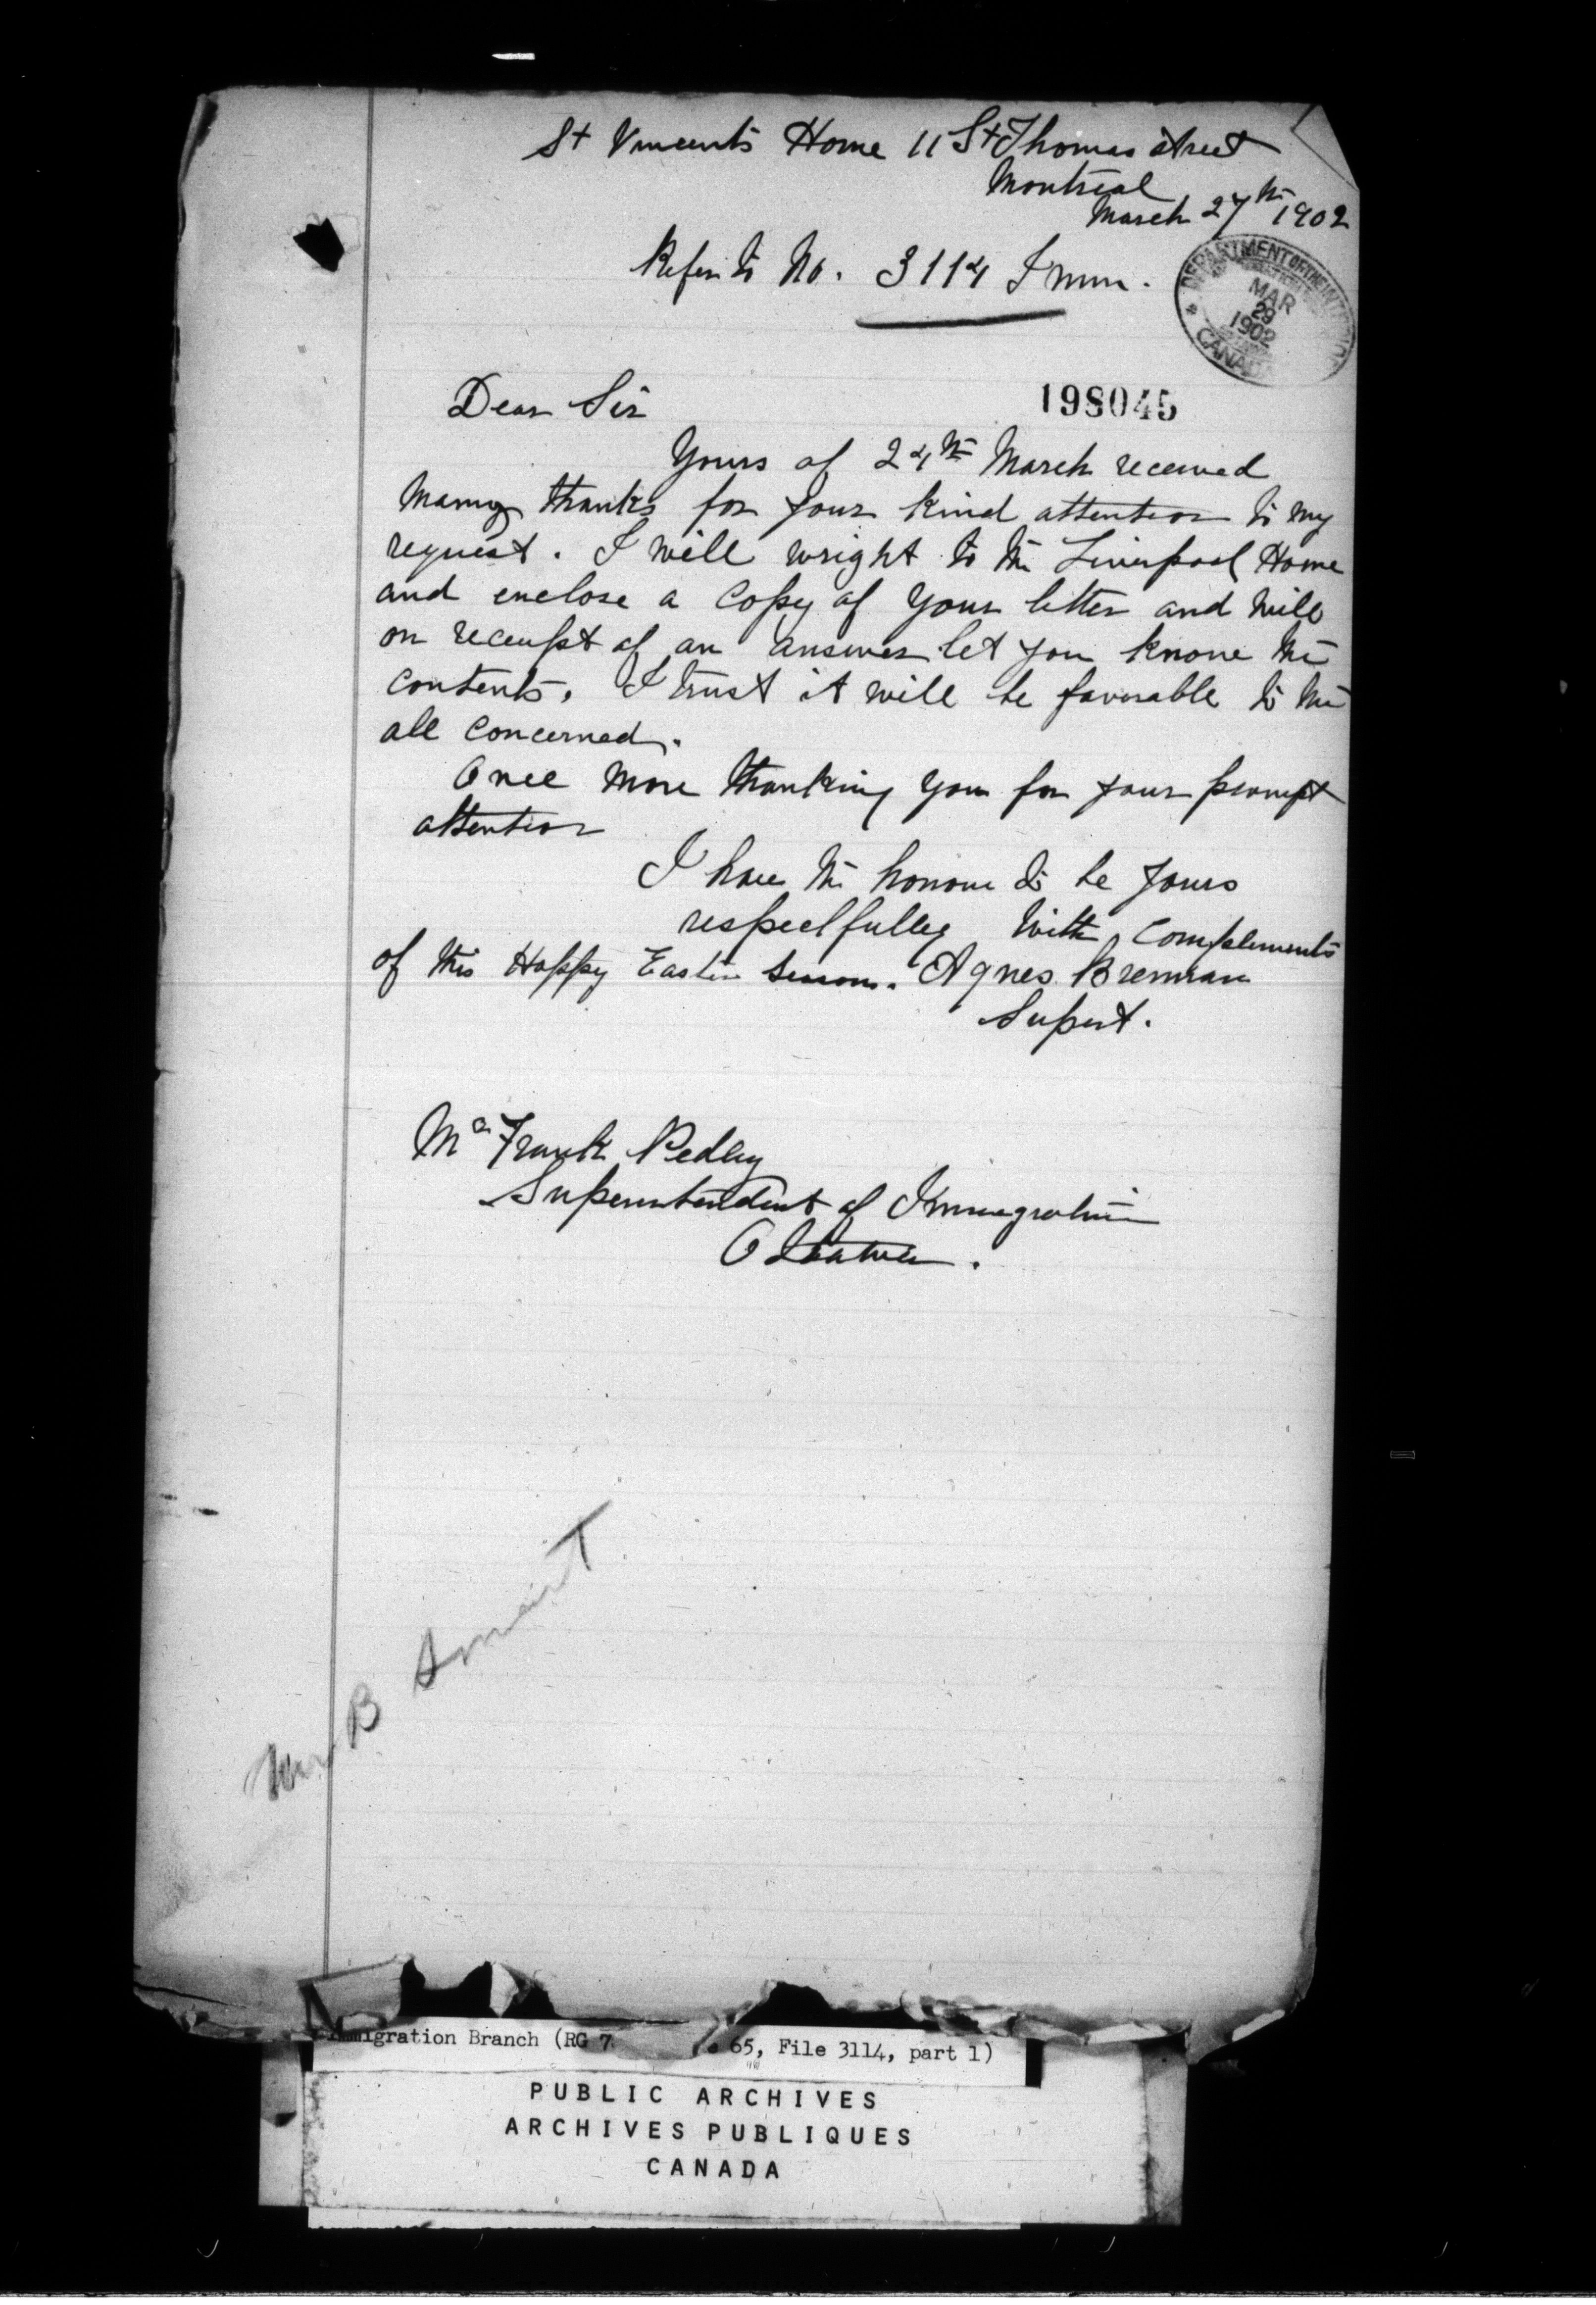 St Vincents Home 11 St Thomas street
Montreal
March 27th 1902
Refer to No. 3114 Imm.
DEPARTMENT OF THE INTERIOR
MAR
29
1902
CANADA
198045
Dear Sir
Yours of 24th March received
Many thanks for your kind attention to my
request. I will wright to the Liverpool Home
and enclose a Copy of your letter and will
on receipt of an answer let you know the
contents. I trust it will be favorable to the
all concerned.
Once more thanking you for your prompt
attention
I have the honour to be yours
respectfully with Complements
of this Happy Easter Season. Agnes Brennan
Supert.
Mr Frank Pedley
Superintendent of Immigration
Ottawa.
B Smart
Immigration Branch (RG 7 65, File 3114, part 1)
PUBLIC ARCHIVES
ARCHIVES PUBLIQUES
CANADA